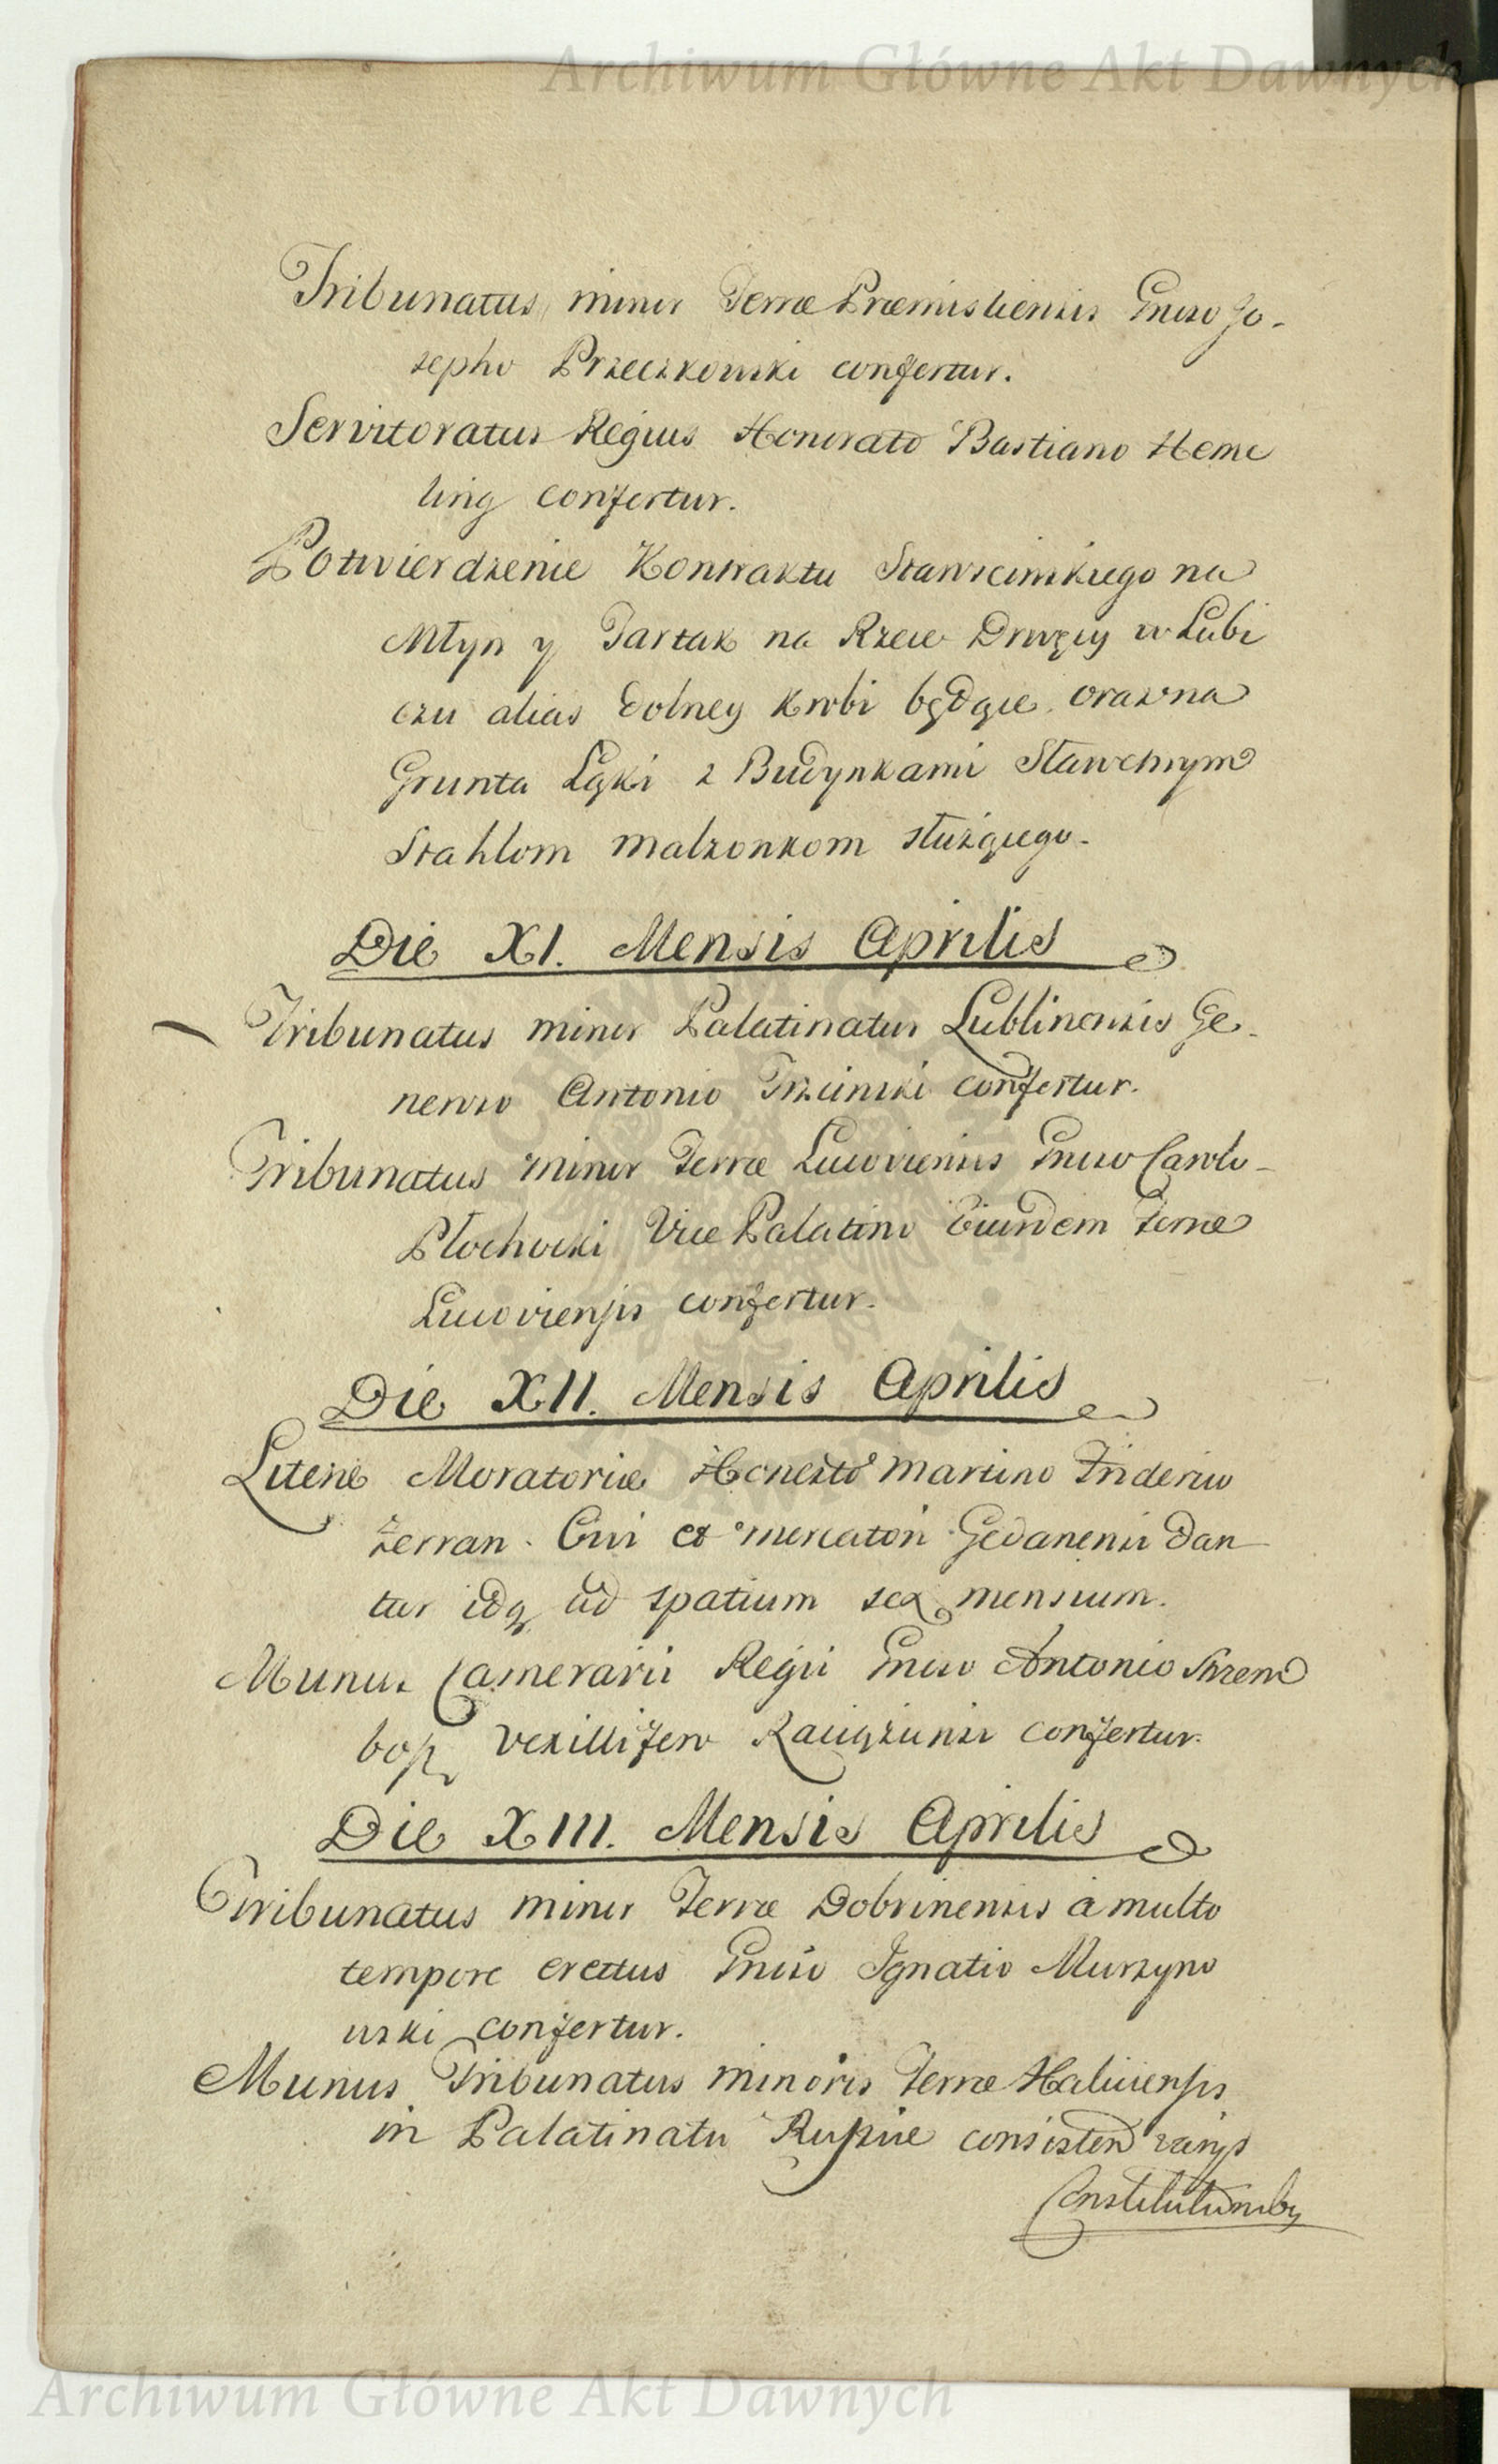 Archiwum Główne Akt Dawnych
Tribunatus minor Terræ Præmisliensis Gneroso Jo-
sepho Przeczkowski confertur.
Servitoratus Regius Honorato Bastiano Heme
ling confertur.
Potwierdzenie Kontraktu Stawscinskiego na
Młyn y Tartak na Rzece Drwęcy w Lubi
czu alias dolney Krobi będące oraz na
Grunta Łąki z Budynkami Sławetnym
Stahlom malzonkom służącego.
Die XI. Mensis Aprilis
Tribunatus minor Palatinatus Lublinensis Ge-
neroso Antonio Trzcinski confertur.
Tribunatus minor Terræ Lucoviensis Gnroso Carolo
Płochocki Vice Palatino Eiusdem Terræ
Lucoviensis confertur.
Die XII. Mensis Aprilis
Literæ Moratoriæ Honesto Martino Friderico
Zerran Civi et mercatori Gedanensi dan
tur idq ad spatium sex mensium.
Munus Camerarii Regii Gnroso Antonio Strzem
bosz Vexillifero Raciązensi confertur.
Die XIII. Mensis Aprilis
Tribunatus minor Terræ Dobrinensis a multo
tempore erectus Gnroso Ignatio Murzyno
wski confertur.
Munus Tribunatus minoris Terræ Haliciensis
in Palatinatu Russiæ consisten
Constitutionibus
Archiwum Główne Akt Dawnych